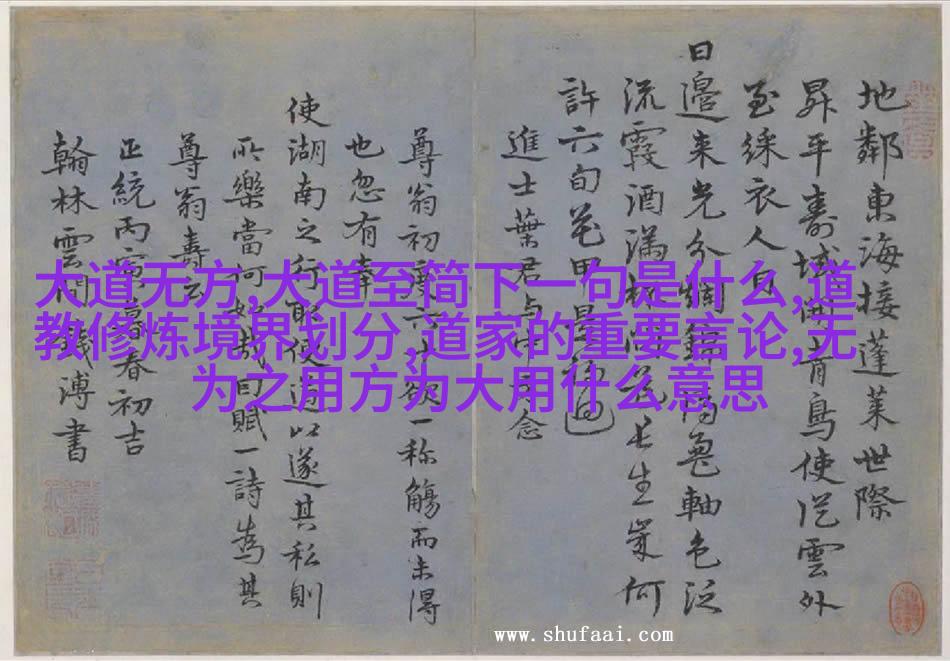 大道无方,大道至简下一句是什么,道
教修炼境界划分,道家的重要言论,无
为之用方为大用什么意思
地鄰東海接蓬萊世際
昇平壽域開青鳥使從雲外
至綵衣人自
日邊來光分軸色泛
流霞酒滿長生歲何
許六旬花甲是
進士葉君与中念
尊翁初度六十欲一称觴而未得
也忽有奉
使湖南之行取便道以遂其私則
所樂當何如哉因賦一詩為其
尊翁壽云
正統丙寅暮春初吉
翰林雲間錢溥書
www.shufaai.com